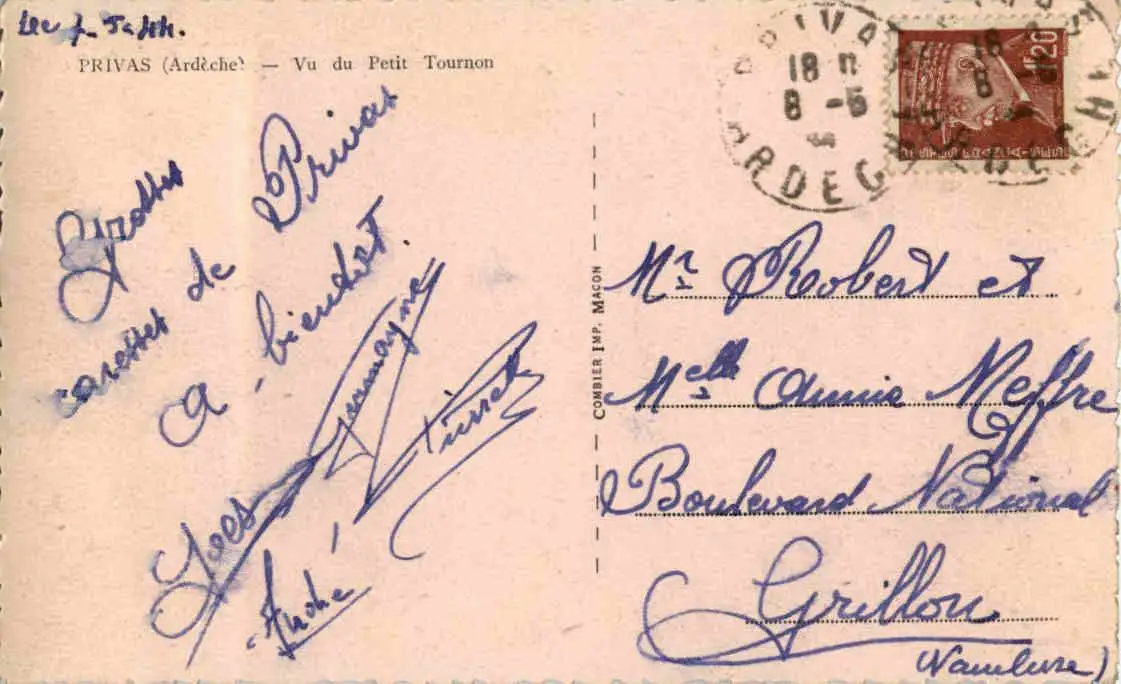 Le 7-5-44.
PRIVAS (Ardèche) — Vu du Petit Tournon
Grosses
caresses de Privas
A bientôt.
Yves
André
COMBIER IMP. MACON
PRIVAS
18 H
8 -5
44
ARDECHE
1F20
Mr Robert et
Melle Annie Meffre
Boulevard National
Grillon
(Vaucluse)